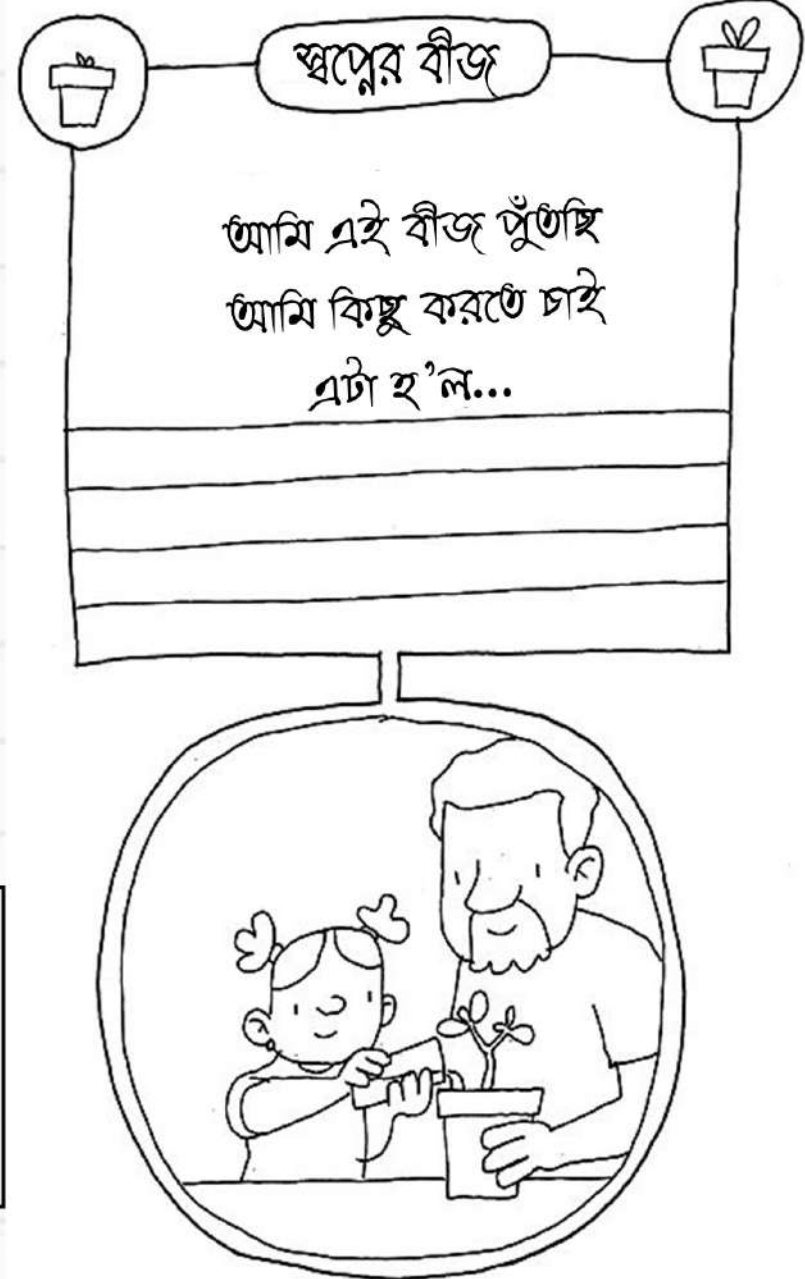 স্বপ্নের বীজ
আমি এই বীজ পুঁতছি
আমি কিছু করতে চাই
এটা হ'ল...